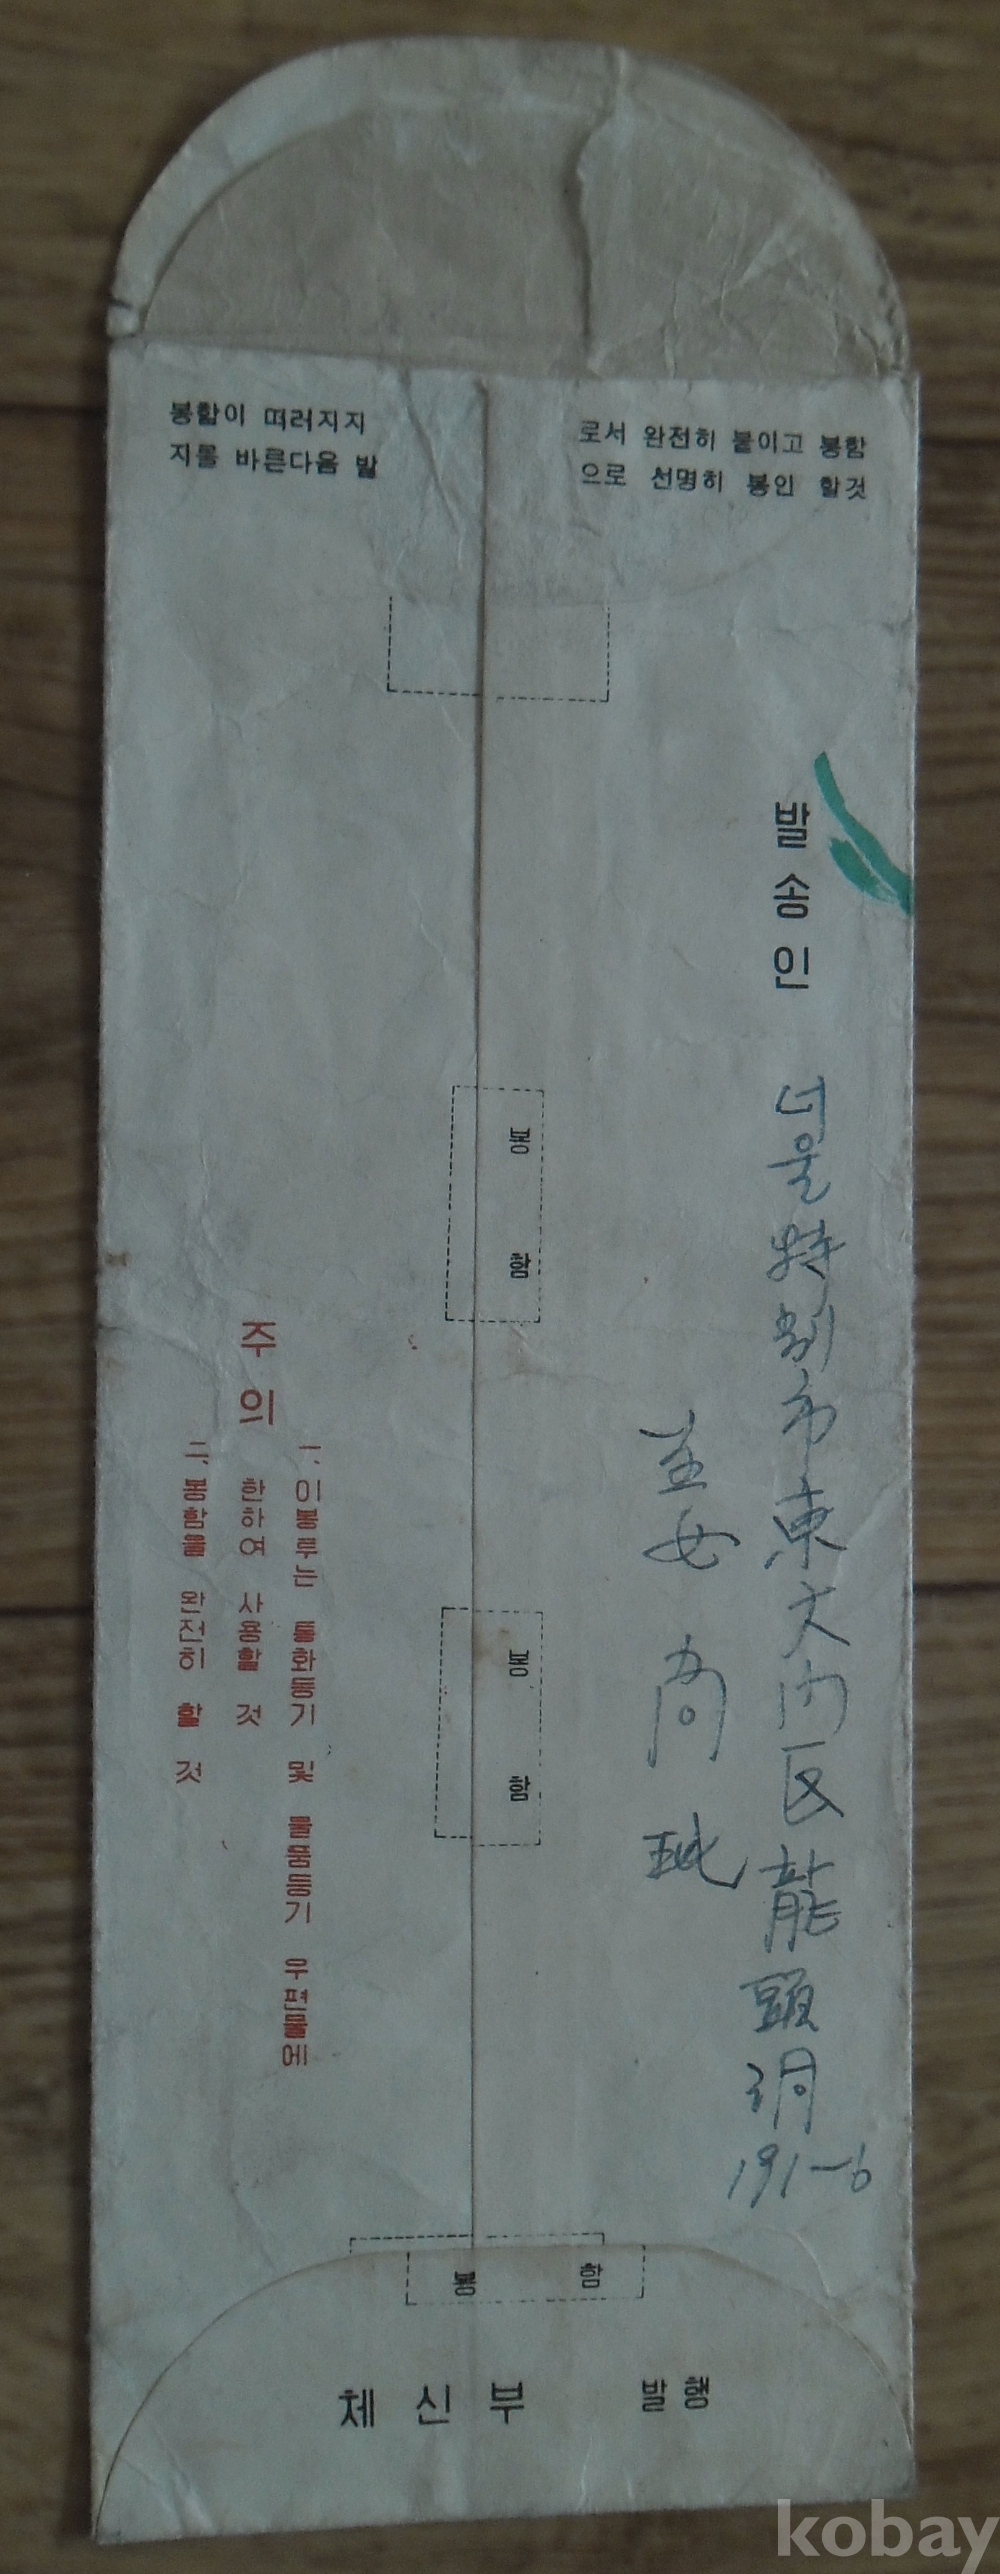 봉함이 떠러지지
로서 완전히 붙이고 봉함
지를 바른다음 발
으로 선명히 봉인 할것
발송인
서울特別市東大门区龍頭洞
191-6
봉 함
주의
一、이봉투는 통화등기 및 물품등기 우편물에
한하여 사용할 것
二、봉함을 완전히 할 것
봉 함
봉 함
체신부 발행
kobay